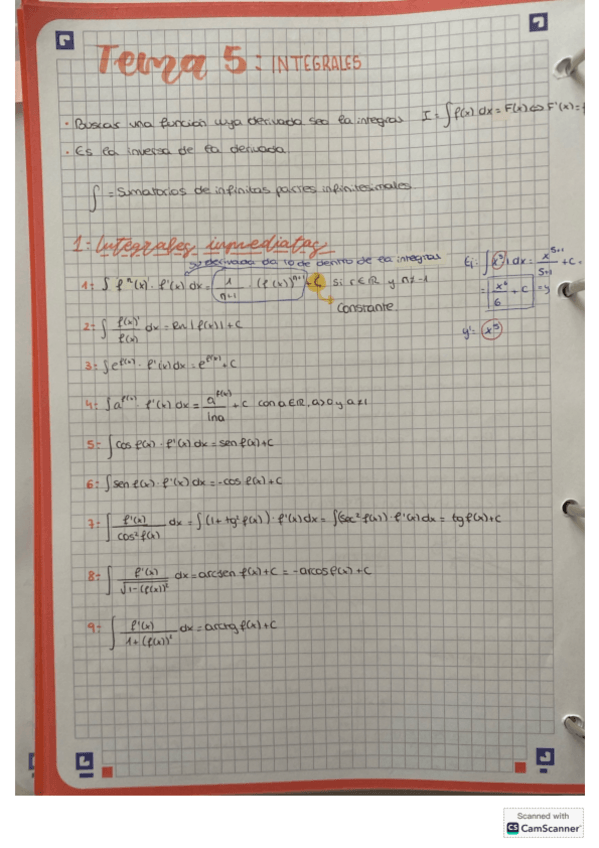 Tema 5: INTEGRALES
· Buscas una función cuya derivada sea la integras I = ∫f(x) dx = F(x) ⇔ F'(x) = f
· Es la inversa de la derivada.
∫ = Sumatorios de infinitas partes infinitesimales.
1: Integrales inmediatas
su derivada da lo de dentro de la integras
1: ∫ fⁿ(x) · f'(x) dx = 1/(n+1) · (f(x))ⁿ⁺¹ + C si r ∈ ℝ y n ≠ -1
Constante
Ej: ∫(x⁵) dx = x⁵⁺¹/(5+1) + C.
= x⁶/6 + C = y
y' = (x⁵)
2: ∫ f(x)'/f(x) dx = ln |f(x)| + C
3: ∫ e^f(x) · f'(x) dx = e^f(x) + C
4: ∫ a^f(x) · f'(x) dx = a^f(x)/lna + C con a ∈ ℝ, a>0 y a≠1
5: ∫ cos f(x) · f'(x) dx = sen f(x) + C
6: ∫ sen f(x) · f'(x) dx = -cos f(x) + C
7: ∫ f'(x)/cos² f(x) dx = ∫(1 + tg² f(x)) · f'(x) dx = ∫(sec² f(x)) · f'(x) dx = tg f(x) + C
8: ∫ f'(x)/√1-(f(x))² dx = arcsen f(x) + C = -arcos f(x) + C
9: ∫ f'(x)/1+(f(x))² dx = arctg f(x) + C
Scanned with
CS CamScanner